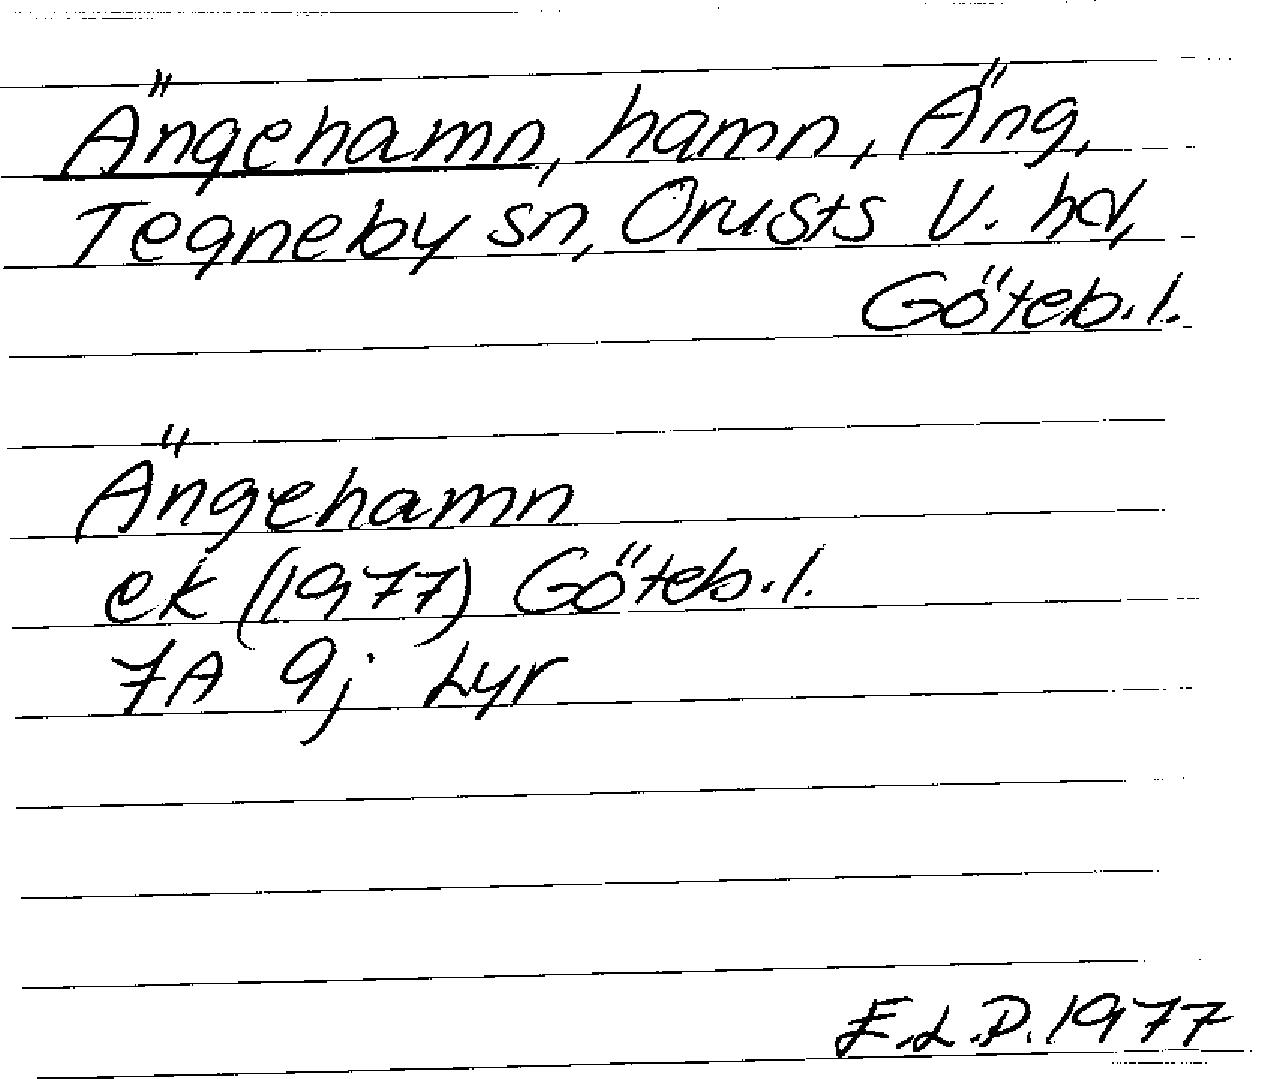 Ängehamn, hamn, Äng,
Tegneby sn, Orusts V. hd,
Göteb. l.
Ängehamn
ek (1977) Göteb. l.
7A 9j Lyr
E.L.P. 1977